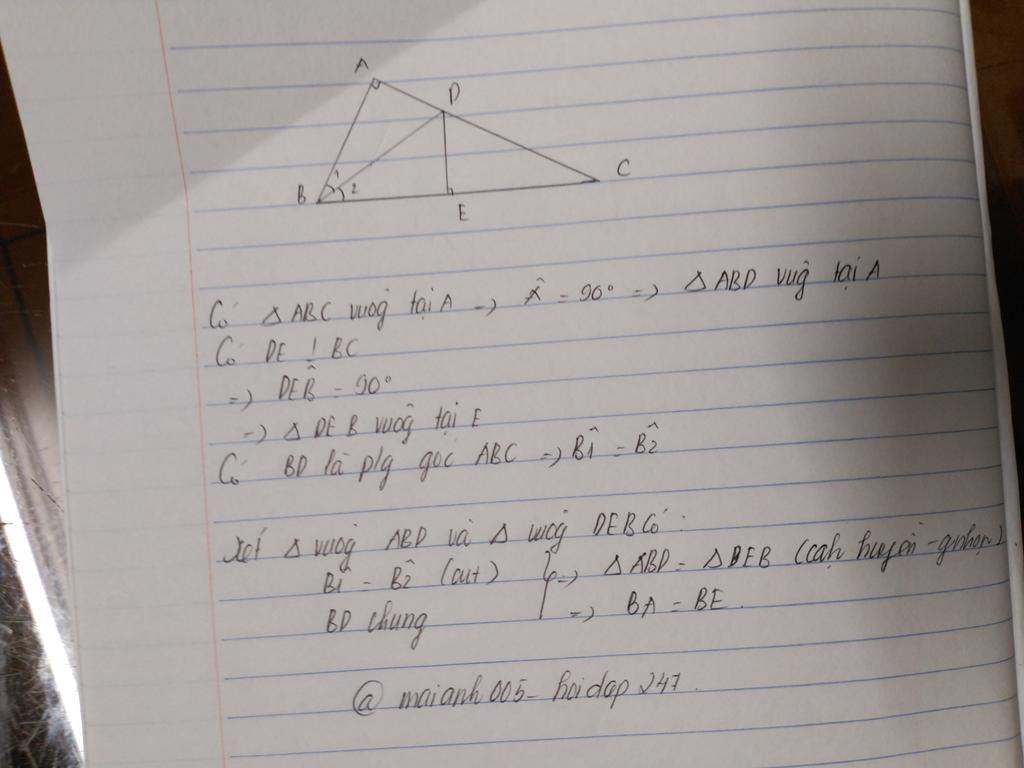 A
D
B
1
2
E
C
Có ΔABC vuôg tại A => Â = 90° => ΔABD vuôg tại A
Có DE ⊥ BC
=> DEB̂ = 90°
=> Δ DEB vuôg tại E
Có BD là p/g góc ABC => B̂1 = B̂2
Xét Δ vuôg ABD và Δ vuôg DEB có:
B̂1 = B̂2 (cmt) => ΔABD = ΔDEB (cạh huyền - gnhọn)
BD chung => BA = BE.
@maianh005-hoidap247.